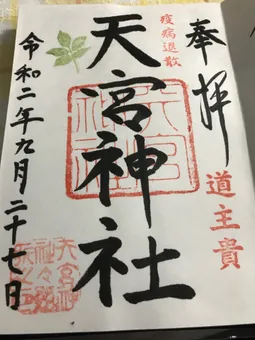 奉拝
道主貴
疫病退散
天宮神社
令和二年九月二十七日